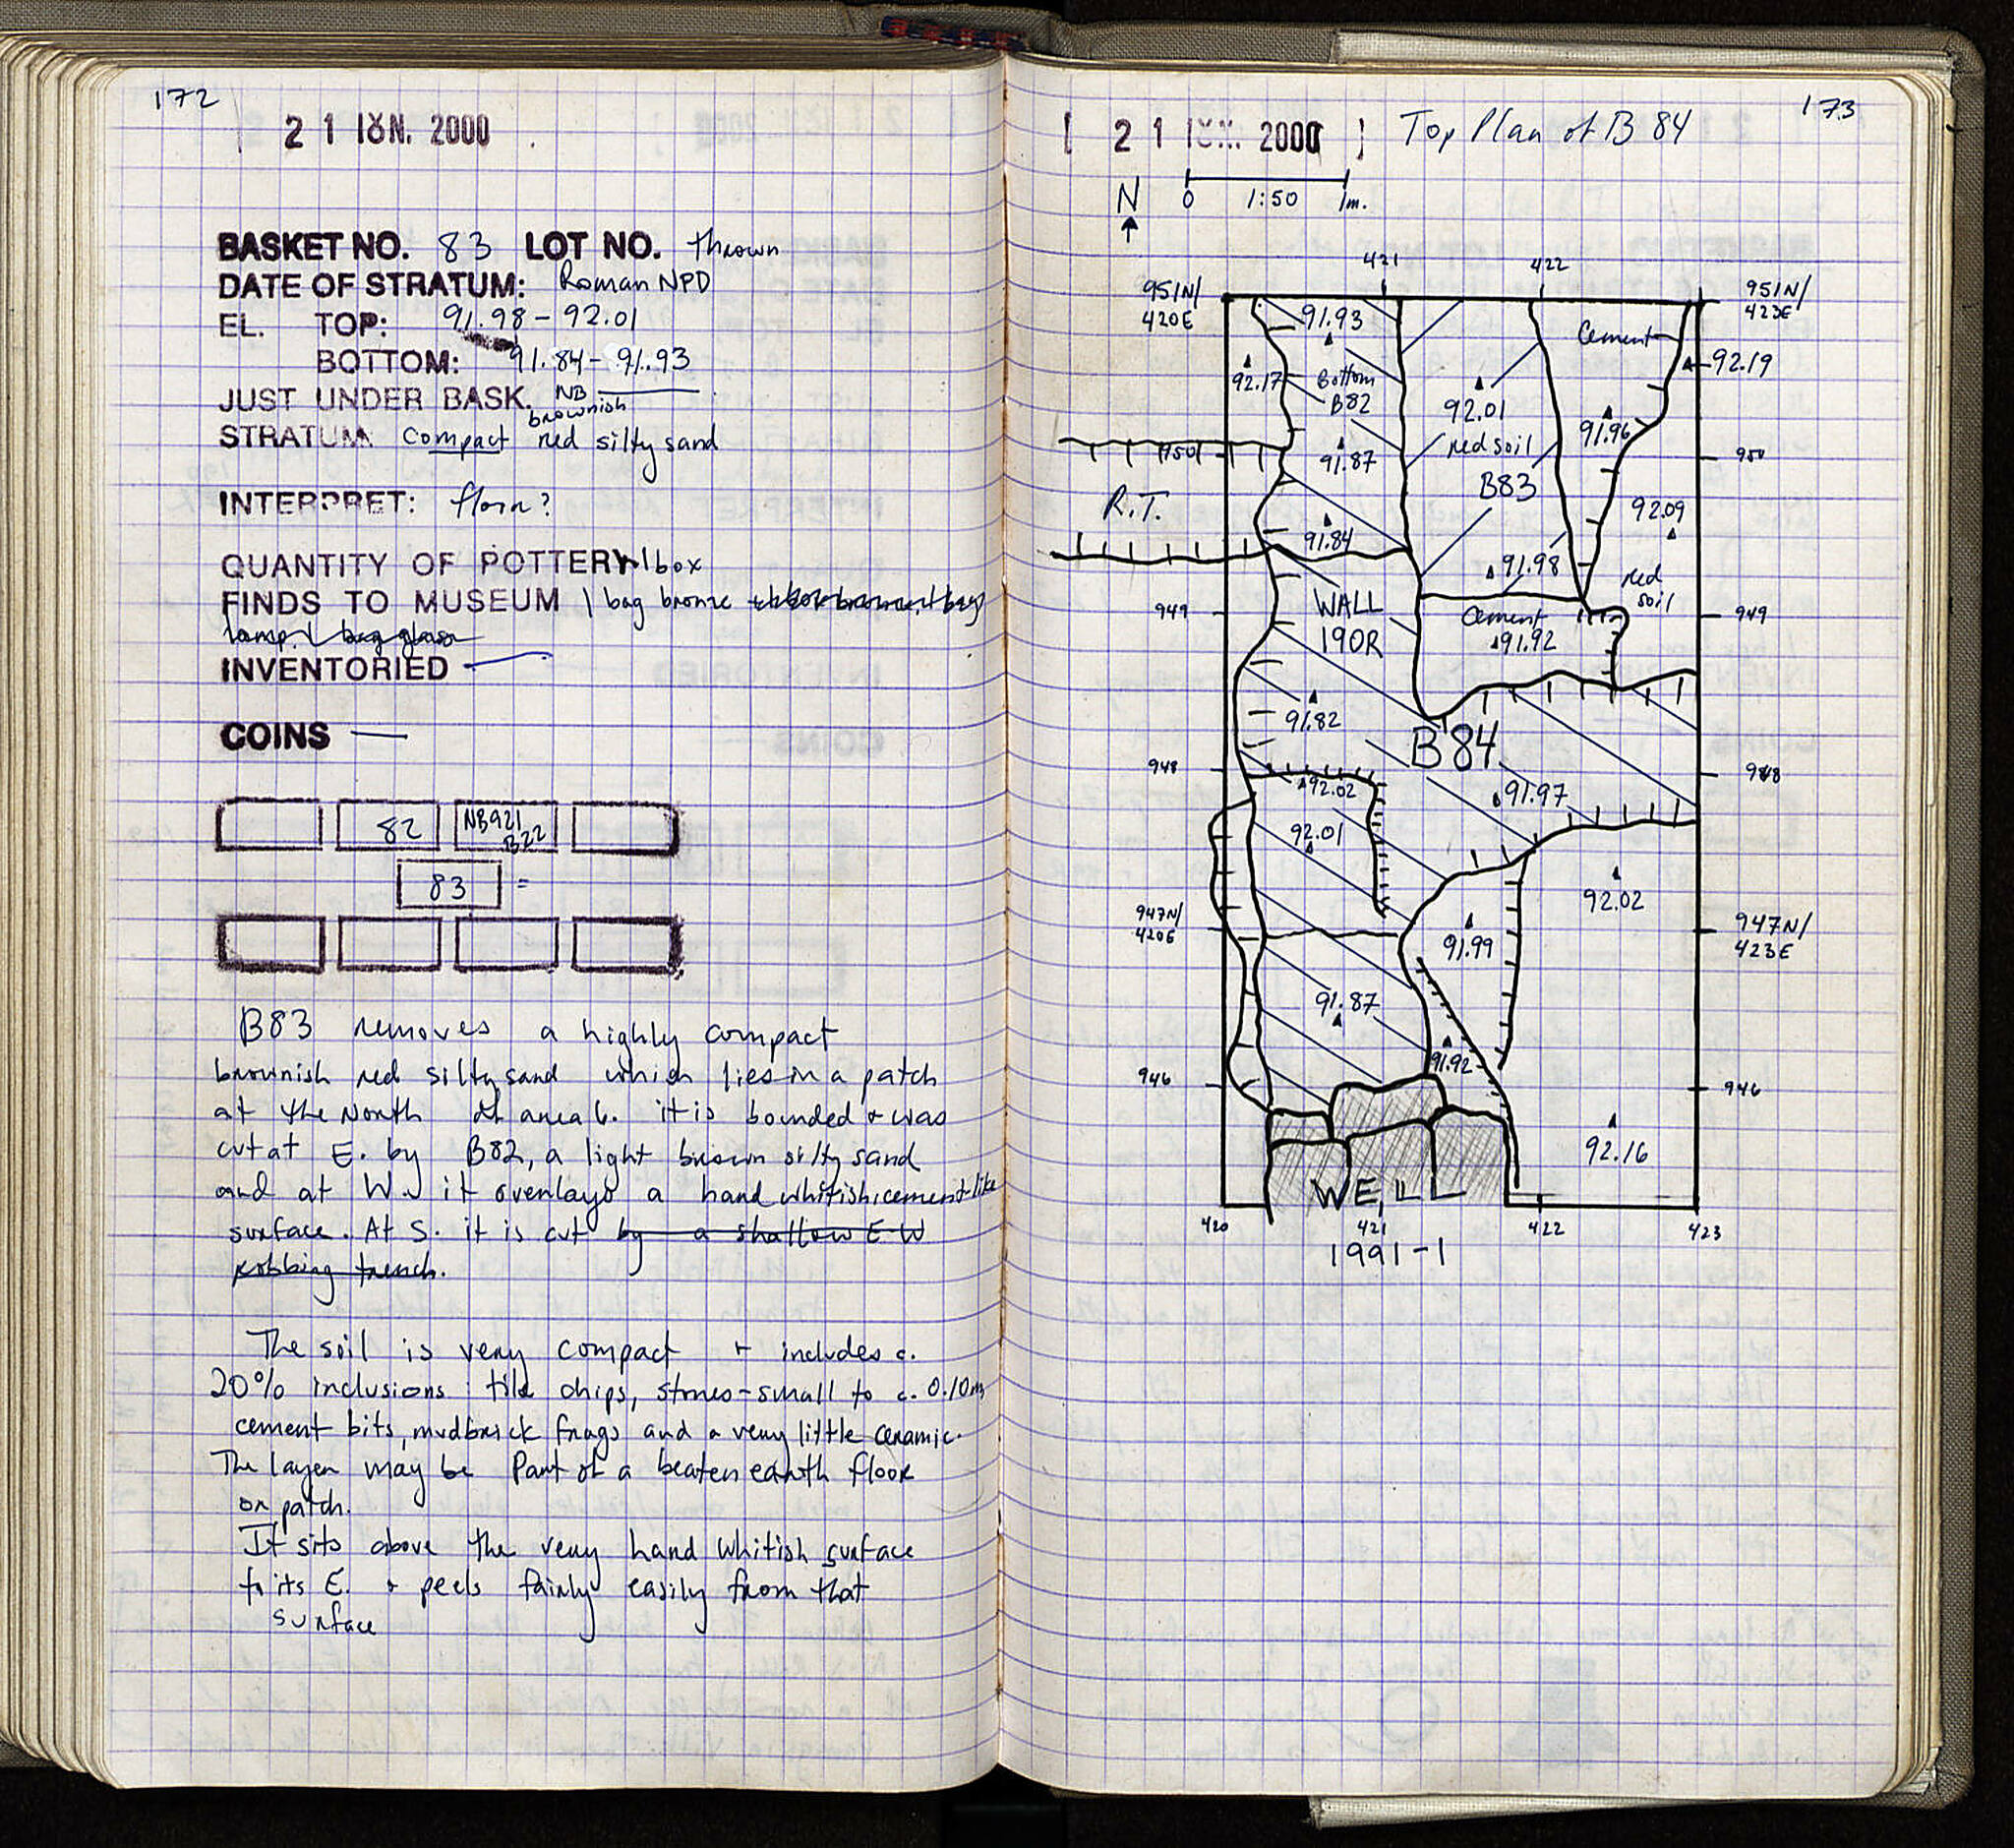 172
21 ΙΟΥΝ. 2000
BASKET NO. 83 LOT NO. thrown
DATE OF STRATUM: Roman NPD
EL. TOP: 91.98 - 92.01
BOTTOM: 91.84 - 91.93
JUST UNDER BASK. NB
brownish
STRATUM: compact red silty sand
INTERPRET: floor?
QUANTITY OF POTTERY 1 box
FINDS TO MUSEUM 1 bag bronze
lamp, 1 bag glass
INVENTORIED —
COINS —
82 NB921
B22
83 =
B83 removes a highly compact
brownish red silty sand which lies in a patch
at the North of area 6. it is bounded + was
cut at E. by B82, a light brown silty sand
and at W. it overlays a hard whitish cement-like
surface. At S. it is cut by a shallow E-W
robbing trench.
The soil is very compact + includes c.
20% inclusions: tile chips, stones - small to c. 0.10m
cement bits, mudbrick frags and a very little ceramic.
The layer may be Part of a beaten earth floor
or patch.
It sits above the very hard whitish surface
to its E. + peels fairly easily from that
surface
173
[ 21 ΙΟΥΝ. 2000 ] Top Plan of B 84
N 0 1:50 1m.
421 422
951N/
420E
951N/
423E
91.93
Cement
92.19
92.17
Bottom
B82
92.01
91.96
red soil
950
91.87
950
B83
R.T.
92.09
91.84
91.98
red
soil
949
WALL
190R
Cement
91.92
949
91.82
B 84
948
948
92.02
91.97
92.01
92.02
947N/
420E
91.99
947N/
423E
91.87
91.92
946
946
92.16
WELL
420 421 422 423
1991-1